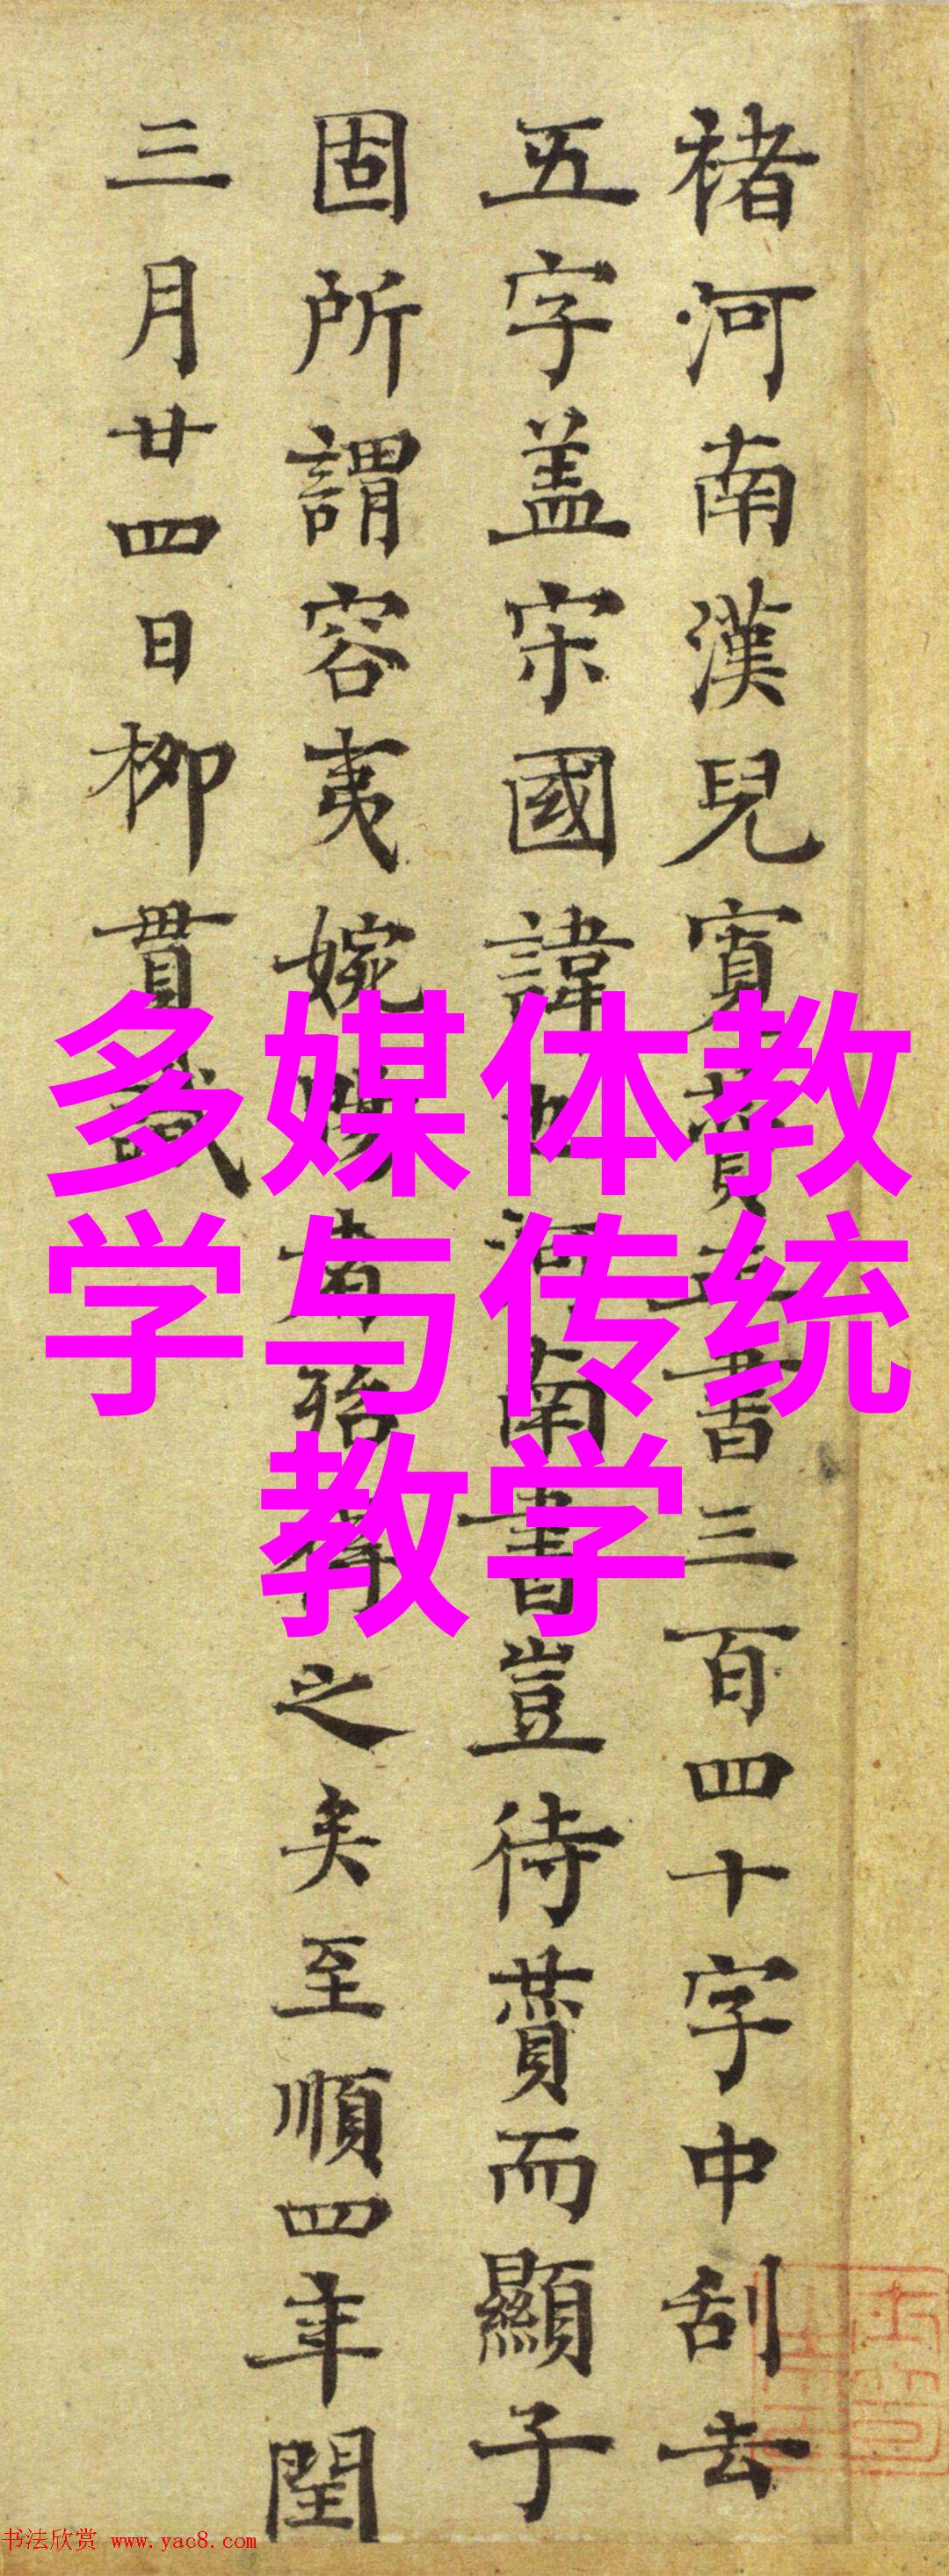 褚河南漢兒寬贊真書三百四十字中刮去
五字盖宋國諱也河南書豈待贊而顯子
固所謂容夷婉暢者殆得之矣至順四年閏
三月廿四日柳貫識
多媒体教
学与传统
教学
书法欣赏 www.yac8.com